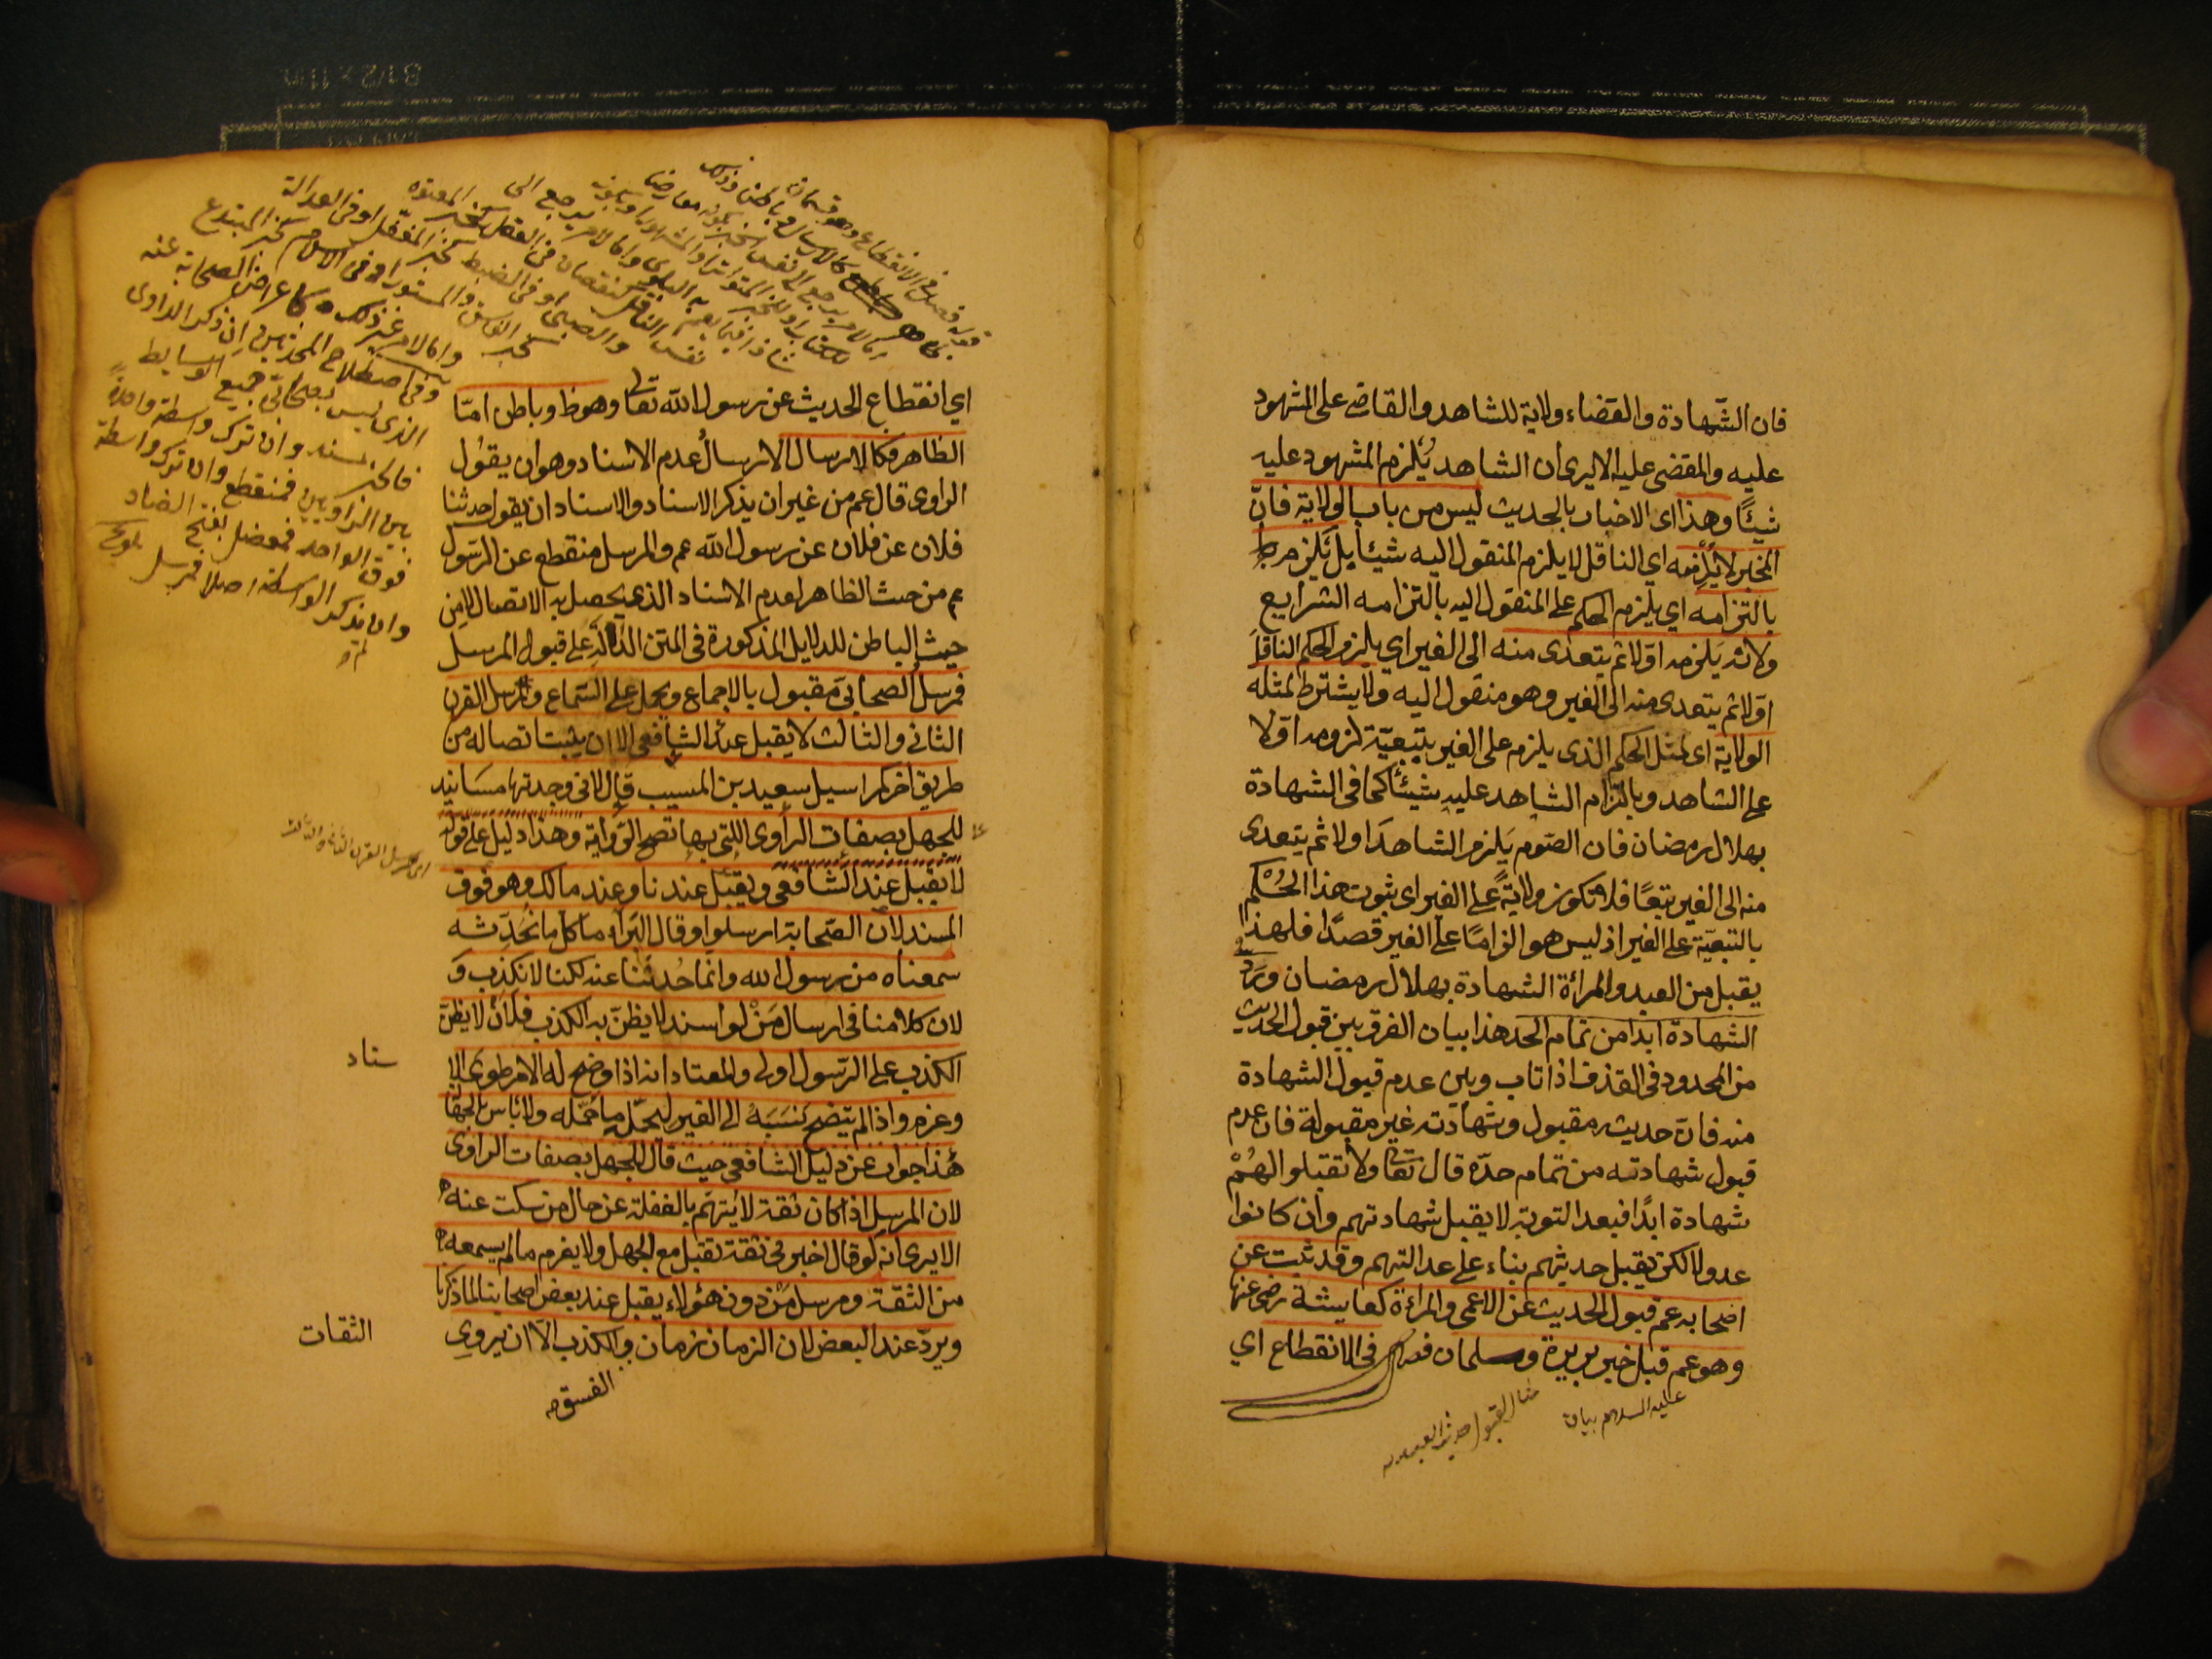 فان الشهادة والقضاء ولاية للشاهد والقاضى على المشهود
عليه والمقضى عليه الا يرى ان الشاهد يُلزم المشهود عليه
شيئًا وهذا اى الاخبار بالحديث ليس من باب الولاية فانّ
المخبر لا يُلزمه اي الناقل لا يلزم المنقول اليه شيئا بل يَلزم
بالتزامه اي يلزم الحكم على المنقول اليه بالتزامه الشرايع
ولانه يَلزمه اوّلا ثم يتعدى منه الى الغير اي يلزم الحكم الناقلَ
اوّلا ثم يتعدى منه الى الغير وهو منقول اليه ولا يشترط لمثله
الولاية اى لمثل الحكم الذى يلزم على الغير بتبعيّة لزومه اوّلا
على الشاهد وبالتزام الشاهد عليه شيئًا كما فى الشهادة
بهلال رمضان فان الصوم يَلزم الشاهدَ اولا ثم يتعدى
منه الى الغير تبعًا فلا تكون ولايةً على الغير اى ثبوت هذا الحُكْم
بالتبعيّة على الغير اذ ليس هو الزامًا على الغير قصدًا فلهذا
يقبل من العبد والمرأة الشهادة بهلال رمضان ورَدّ
الشهادة ابدا من تمام الحد هذا بيان الفرق بين قبول الحديث
من المحدود فى القذف اذا تاب وبين عدم قبول الشهادة
منه فانّ حديثه مقبول وشهادته غير مقبولة فان عدم
قبول شهادته من تمام حدّه قال تعالى ولا تقبلوا لهُمْ
شهادة ابدًا فبعد التوبة لا يقبل شهادتهم وان كانوا
عدولا لكن يقبل حديثهم بناء على عدالتهم وقد ثبت عن
اصحابه عم قبول الحديث عن الاعمى والمراءة كعايشة رضى عنها
وهو عم قبل خبر بريرة وسلمان فصل فى الانقطاع اي
عليه السلام بيان
مثال لقبول حديث العبد
اي انقطاع الحديث عن رسول الله تعالى وهو ظ وباطن امّا
الظاهر فكالارسال الارسالُ عدم الاسناد وهو ان يقول
الراوى قال عم من غير ان يذكر الاسناد والاسناد ان يقول حدثنا
فلان عن فلان عن رسول الله عم والمرسل منقطع عن الرسول
عم من حيث الظاهر لعدم الاسناد الذى يحصل به الاتصال لا من
حيث الباطن للدلايل المذكورة فى المتن الدالّة على قبول المرسل
فمرسل الصحابىّ مقبول بالاجماع ويحمل على السّماع ومرسل القرن
الثانى والثالث لا يقبل عند الشافعى الا ان يثبت اتصاله من
طريق اخر كمراسيل سعيد بن المسيب قال لانى وجدتها مسانيد
للجهل بصفات الراوى اللتى بها تصح الرّواية وهذا دليل على قوله
لا يقبل عند الشافعى ويقبل عندنا وعند مالك وهو فوق
المسند لان الصّحابة ارسلوا وقال البَراء ما كل ما نُحَدِّثه
سمعناه من رسول الله وانّما حُدّثنا عنه لكنا لا نكذب وَ
لان كلامنا فى ارسال مَنْ لو اسند لا يظنّ به الكذب فلان لا يظنّ
الكذب على الرّسول اولى والمعتاد انه اذا وضح له الامر طوى الا
سناد
وعزم واذا لم يتّضح نَسَبَهُ الى الغير ليحمّله ما حُمّله ولا بأس بالجهالة
هذا جواب عن دليل الشافعى حيث قال للجهل بصفات الراوى
لان المرسل اذا كان ثقة لا يُتّهَم بالغفلة عن حال من سكت عنه
الا يرى انه لو قال اخبرنى ثقة تقبل مع الجهل ولا يعزم ما لم يسمعه
من الثقة ومرسل مَن دون هؤلاء يقبل عند بعض اصحابنا لما ذكرنا
ويردّ عند البعض لان الزمان زمان والكذب الّا ان يروى
الثقات
الفسق
قوله فصل فى الانقطاع وهو قسمان
وفى اصطلاح المحدثين ان ذكر الراوى
الذى ليس بصحابى جميع الوسايط
فالخبر مسند وان ترك واسطة واحدةً
بين الراويين فمنقطع وان ترك واسطة
فوق الواحد فمعضل بفتح الضاد
وان لم يذكر الواسطة اصلا فمرسل تلويح
اى مرسل القرن الثانى والثالث